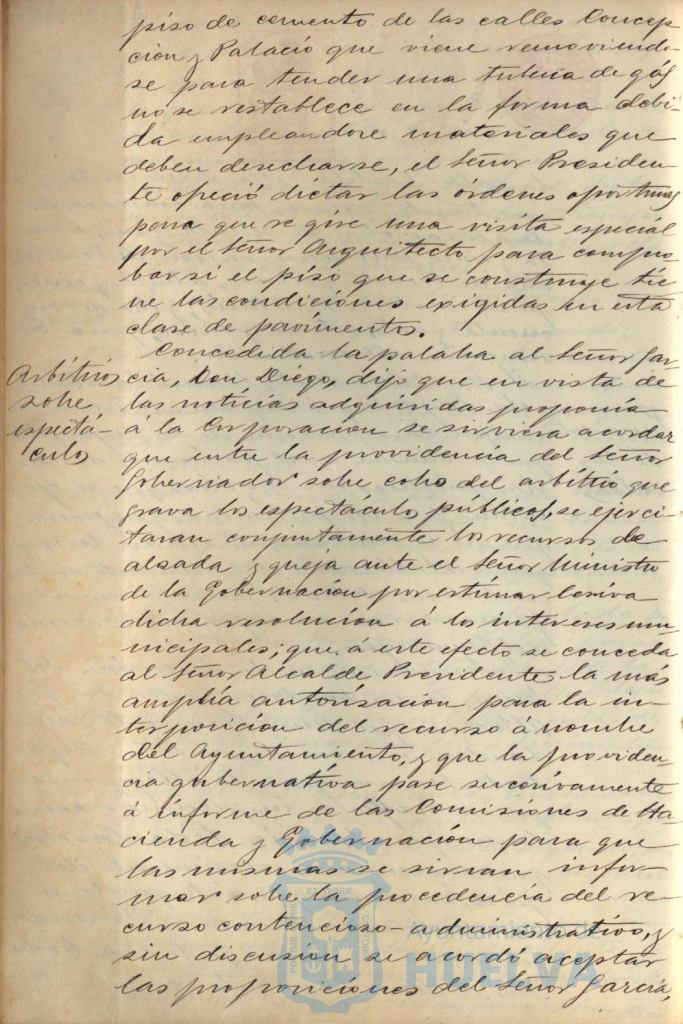 piso de cemento de las calles Concep
cion y Palacio que viene removiendo
se para tender una tuberia de gas
no se restablece en la forma debi-
da empleandose materiales que
deben desecharse, el Señor Presiden
te ofreció dictar las órdenes oportunas
para que se gire una visita especial
por el Señor Arquitecto para compro-
bar si el piso que se construye tie
ne las condiciones exigidas en esta
clase de pavimentos.
Concedida la palabra al Señor Gar-
Arbitrios
sobre
espectá-
culos
cia, Don Diego, dijo que en vista de
las noticias adquiridas proponia
á la Corporacion se sirviera acordar
que entre la providencia del Señor
Gobernador sobre cobro del arbitrio que
grava los espectáculos públicos, se ejerci
taran conjuntamente los recursos de
alzada y queja ante el Señor Ministro
de la Gobernación por estimar lesiva
dicha resolucion á los intereses mu-
nicipales; que á este efecto se conceda
al Señor Alcalde Presidente la más
amplia autorisacion para la in-
terposicion del recurso á nombre
del Ayuntamiento, y que la providen
cia gubernativa pase sucesivamente
á informe de las Comisiones de Ha-
cienda y Gobernación para que
las mismas se sirvan infor-
mar sobre la procedencia del re-
curso contencioso-administrativo, y
sin discusion se acordó aceptar
las proposiciones del Señor Garcia,
Ayuntamiento de
HUELVA